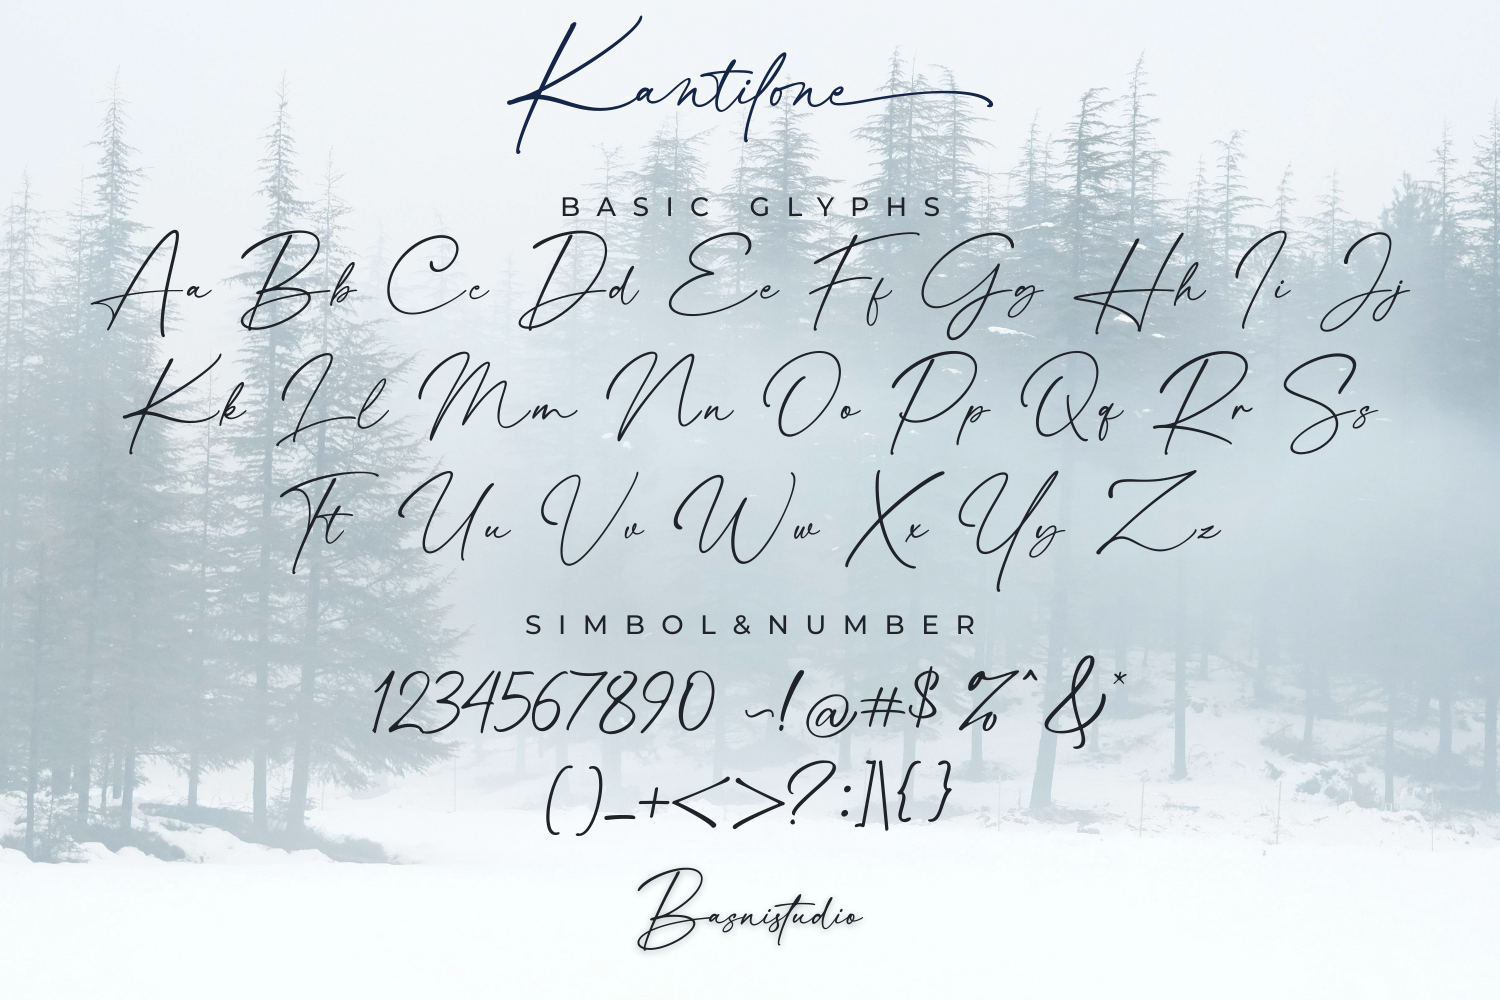 Kantilone
BASIC GLYPHS
Aa Bb Cc Dd Ee Ff Gg Hh Ii Jj
Kk Ll Mm Nn Oo Pp Qq Rr Ss
Tt Uu Vv Ww Xx Yy Zz
SIMBOL&NUMBER
1234567890 ~!@#$%^&*
()_+<>?:]|\{}
Basnistudio